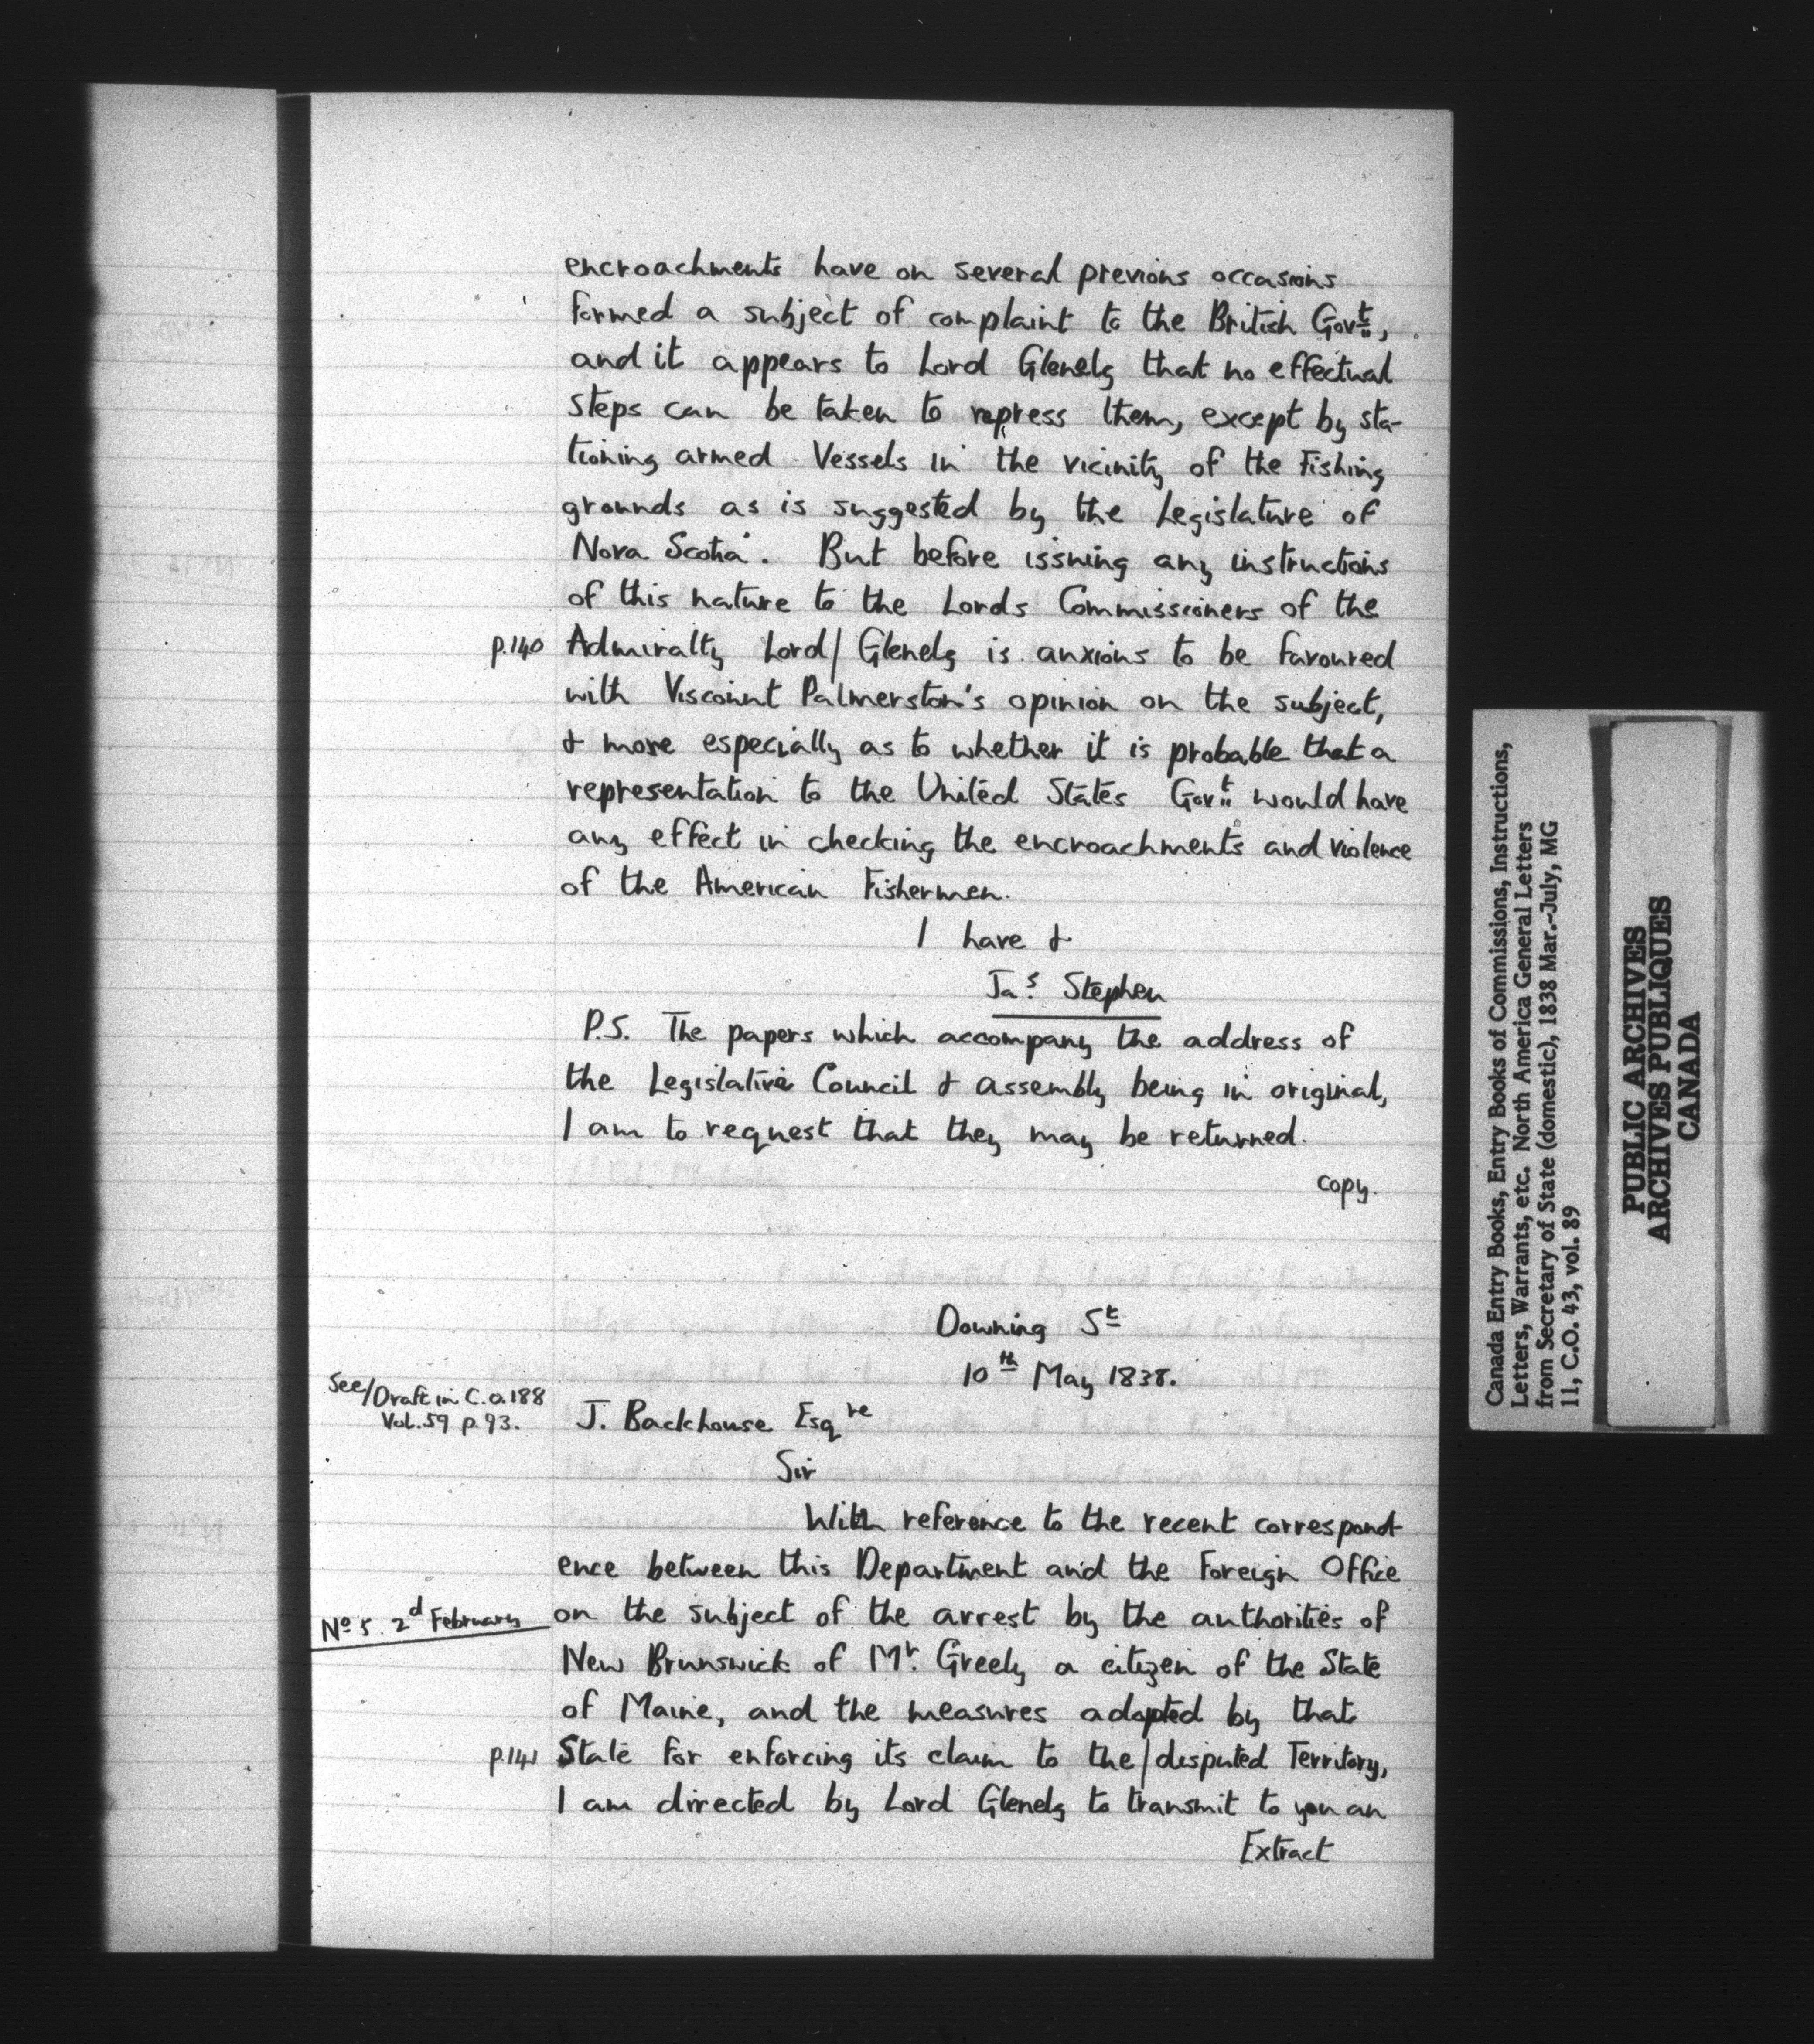 encroachments have on several previous occasions
formed a subject of complaint to the British Govt.,
and it appears to Lord Glenelg that no effectual
steps can be taken to repress them, except by sta-
tioning armed Vessels in the vicinity of the Fishing
grounds as is suggested by the Legislature of
Nova Scotia. But before issuing any instructions
of this nature to the Lords Commissioners of the
p.140 Admiralty Lord/Glenelg is anxious to be favoured
with Viscount Palmerston's opinion on the subject,
& more especially as to whether it is probable that a
representation to the United States Govt. would have
any effect in checking the encroachments and violence
of the American Fishermen.
I have &
Jas. Stephen
P.S. The papers which accompany the address of
the Legislative Council & assembly being in original,
I am to request that they may be returned.
copy.
Downing St
10th May 1838.
See/Draft in C.O.188
Vol.59 p.93.
J. Backhouse Esqre
Sir
With reference to the recent correspond-
ence between this Department and the Foreign Office
No 5. 2d February on the subject of the arrest by the authorities of
New Brunswick of Mr. Greely a citizen of the State
of Maine, and the measures adopted by that
p.141 State for enforcing its claim to the/disputed Territory,
I am directed by Lord Glenelg to transmit to you an
Extract
Canada Entry Books, Entry Books of Commissions, Instructions,
Letters, Warrants, etc. North America General Letters
from Secretary of State (domestic), 1838 Mar.-July, MG
11, C.O. 43, vol. 89
PUBLIC ARCHIVES
ARCHIVES PUBLIQUES
CANADA